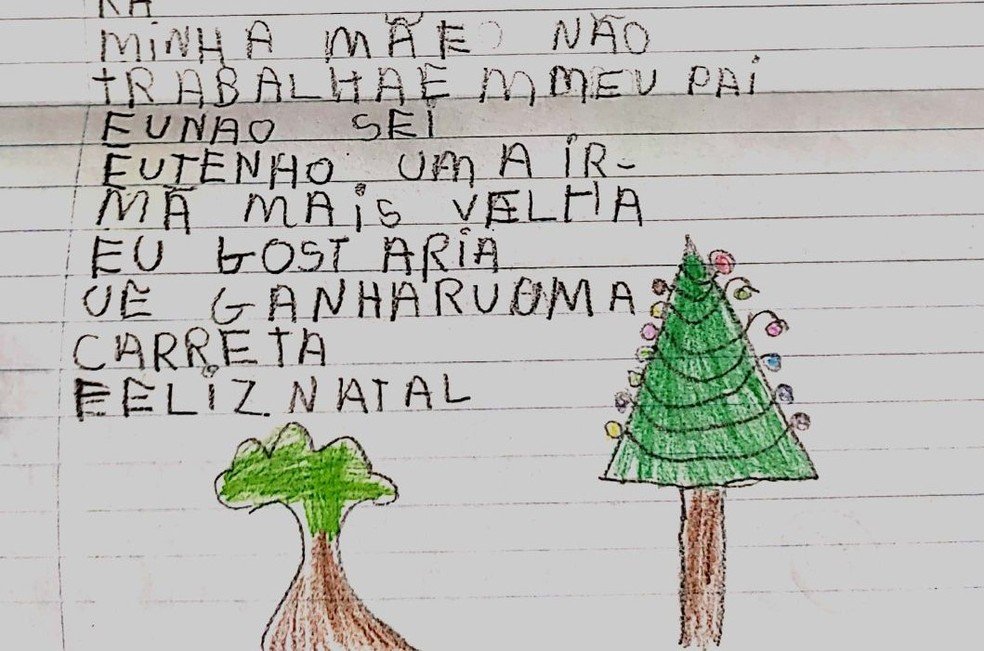 RA
MINHA MÃE NÃO
TRABALHAE MMEU PAI
EUNAO SEI
EUTENHO UMA IR-
MÃ MAIS VELHA
EU GOSTARIA
UE GANHARUOMA
CARRETA
FELIZ NATAL